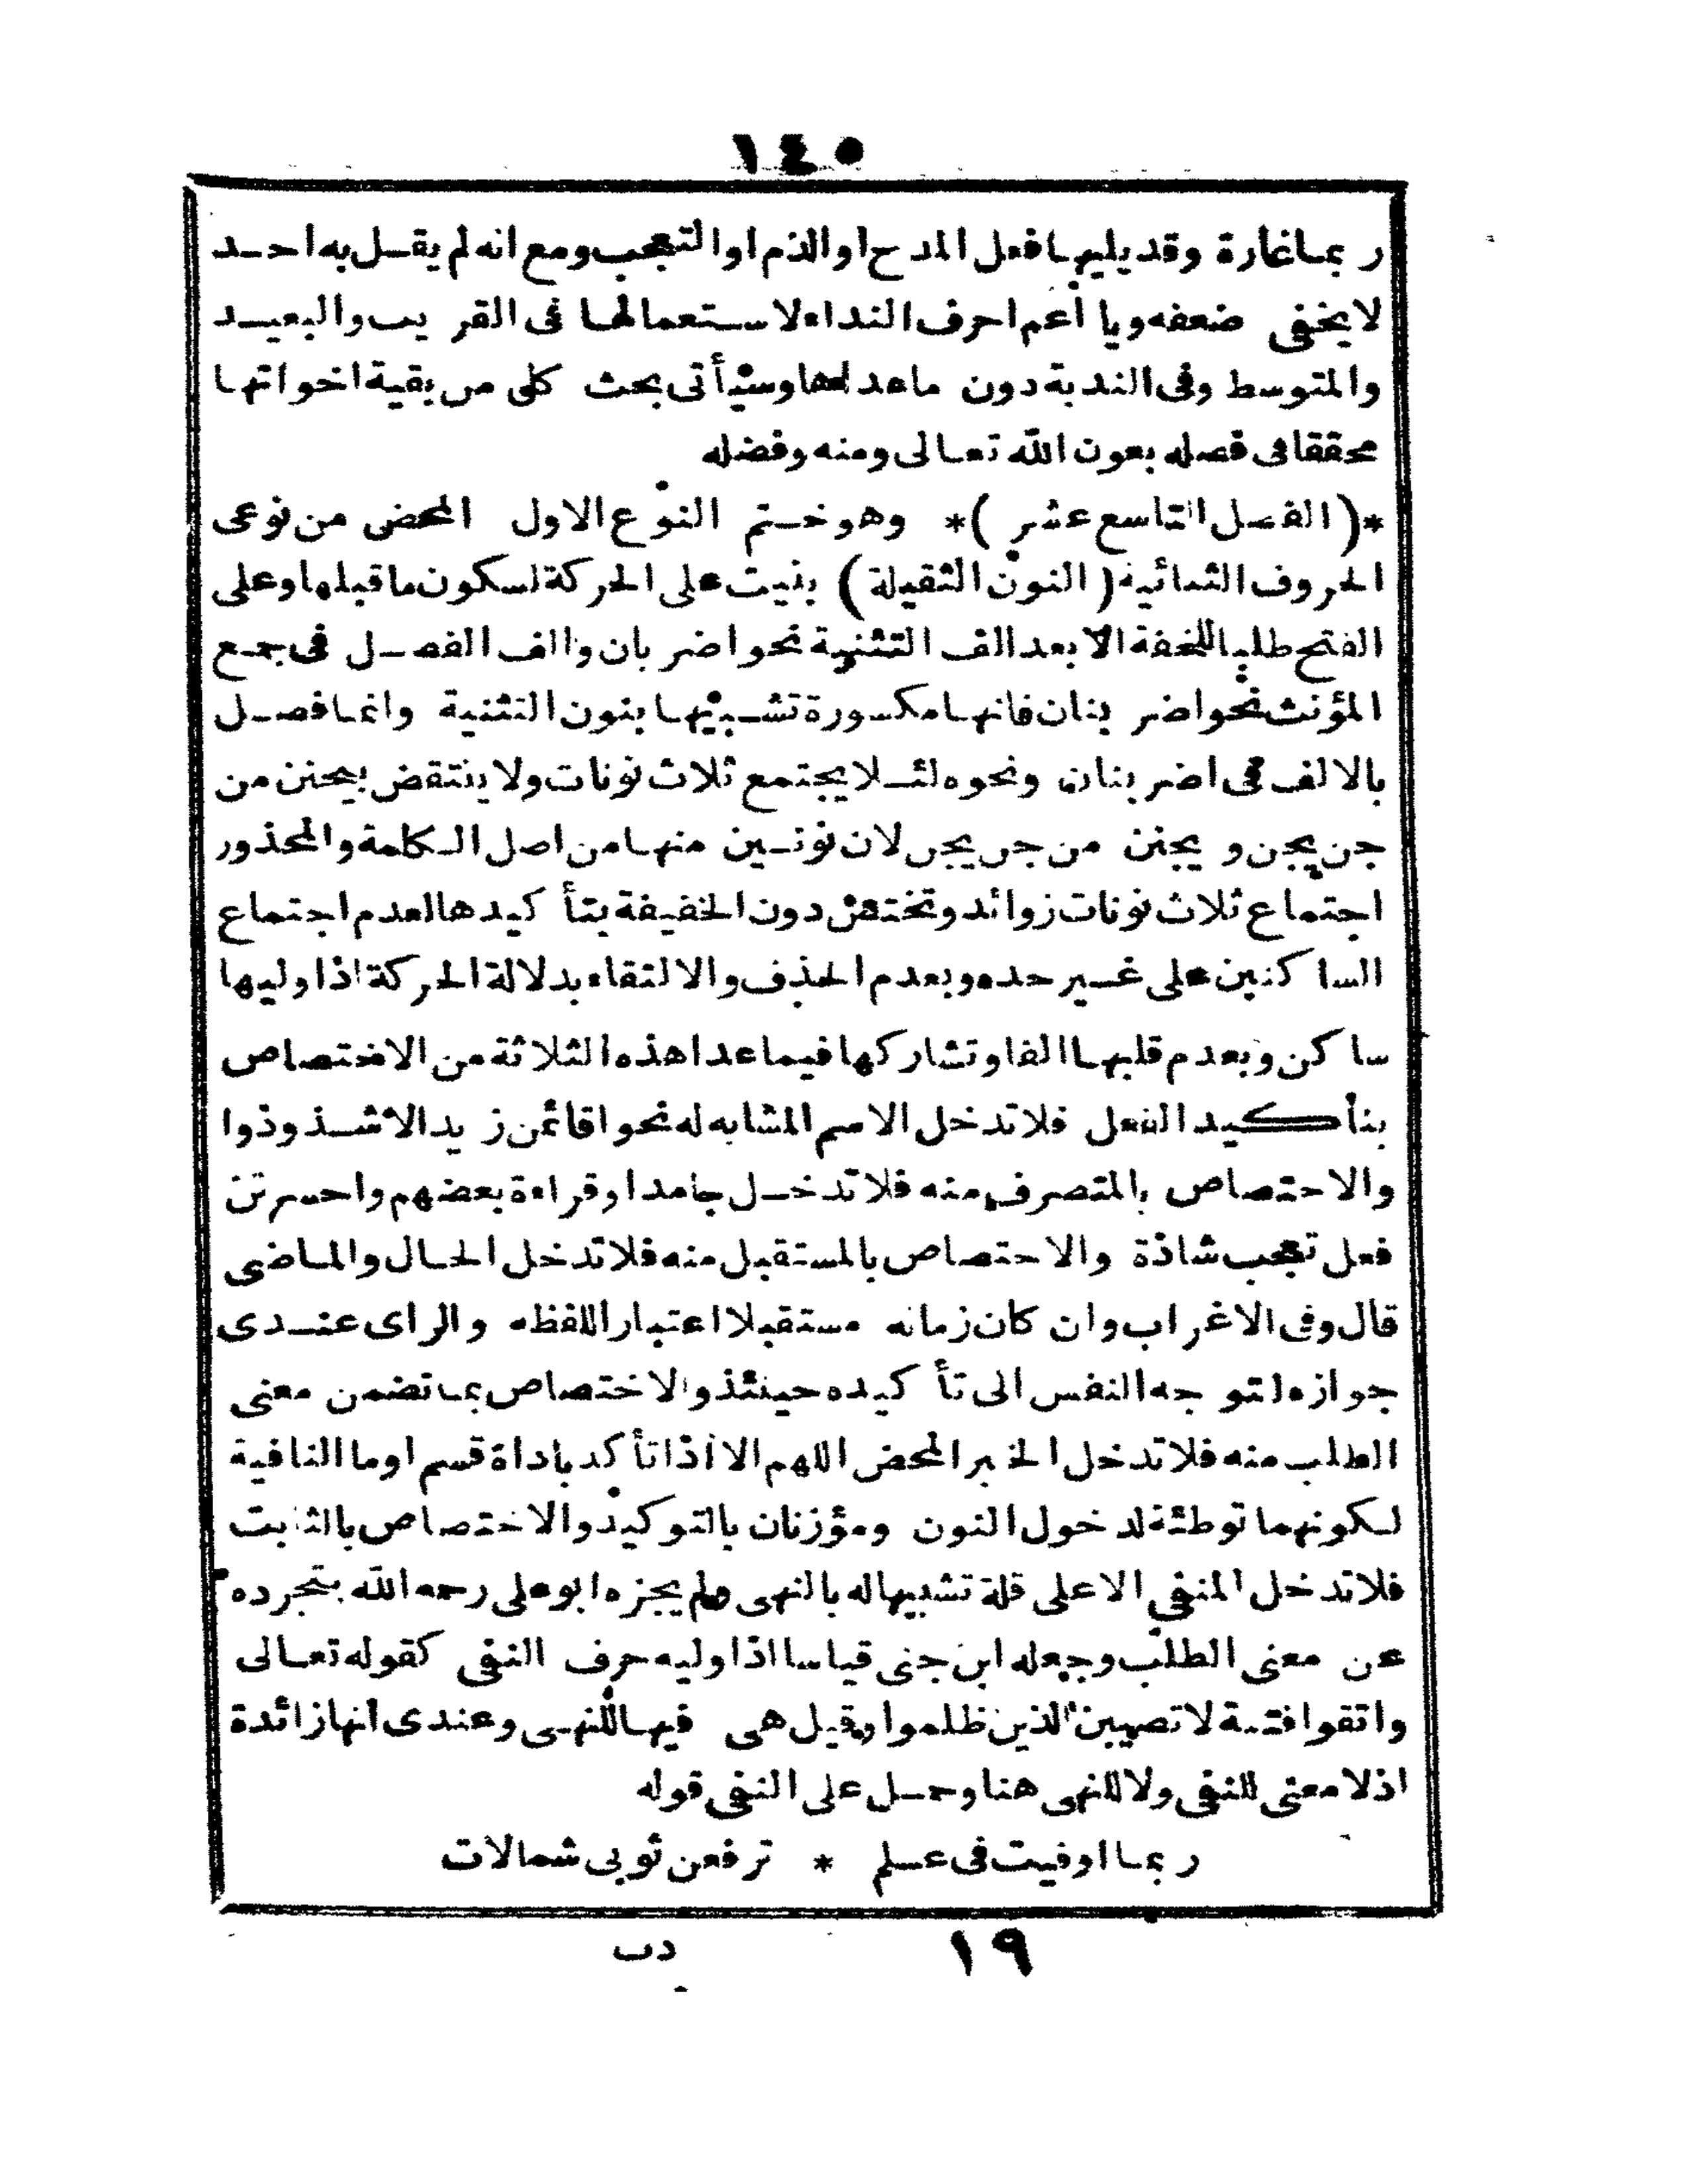 ١٤٥
ربما غارة وقد يليها فعل المدح او الذم او التعجب ومع انه لم يقل به احد
لا يخفى ضعفه ويا أعم احرف النداء لاستعمالها فى القريب والبعيد
والمتوسط وفى الندبة دون ماعداها وسيأتى بحث كل من بقية اخواتها
محققا فى فصله بعون الله تعالى ومنه وفضله
*( الفصل التاسع عشر )* وهو ختم النوع الاول المحض من نوعى
الحروف الثنائية ( النون الثقيلة ) بنيت على الحركة لسكون ما قبلها وعلى
الفتح طلبا للخفة الا بعد الف التثنية نحو اضربان والف الفصل فى جمع
المؤنث نحو اضربنان فانها مكسورة تشبيها بنون التثنية وانما فصل
بالالف فى اضربنان ونحوه لئلا يجتمع ثلاث نونات ولا ينتقض بيجنن من
جن يجن و يجنن من جن يجن لان نونين منها من اصل الكلمة والمحذور
اجتماع ثلاث نونات زوائد وتختص دون الخفيفة بتأكيدها لعدم اجتماع
الساكنين على غير حده وبعدم الحذف والالتقاء بدلالة الحركة اذا وليها
ساكن وبعدم قلبها الفا وتشاركها فيما عدا هذه الثلاثة من الاختصاص
بتأكيد الفعل فلا تدخل الاسم المشابه له نحو اقائمن زيد الا شذوذا
والاختصاص بالمتصرف منه فلا تدخل جامدا وقراءة بعضهم واحسرتن
فعل تعجب شاذة والاختصاص بالمستقبل منه فلا تدخل الحال والماضى
قال وفى الاغراب وان كان زمانه مستقبلا اعتبارا للفظه والراى عندى
جوازه لتوجه النفس الى تأكيده حينئذ والاختصاص بما تضمن معنى
الطلب منه فلا تدخل الخبر المحض اللهم الا اذا تأكد باداة قسم او ما النافية
لكونهما توطئة لدخول النون ومؤزنان بالتوكيد والاختصاص بالثابت
فلا تدخل المنفى الا على قلة تشبيها له بالنهى ولم يجزه ابو على رحمه الله بتجرده
عن معنى الطلب وجعله ابن جنى قياسا اذا وليه حرف النفى كقوله تعالى
واتقوا فتنة لا تصيبن الذين ظلموا وقيل هى فيها للنهى وعندى انها زائدة
اذ لا معنى للنفى ولا للنهى هنا وحمل على النفى قوله
ربما اوفيت فى علم * ترفعن ثوبى شمالات
١٩ دب